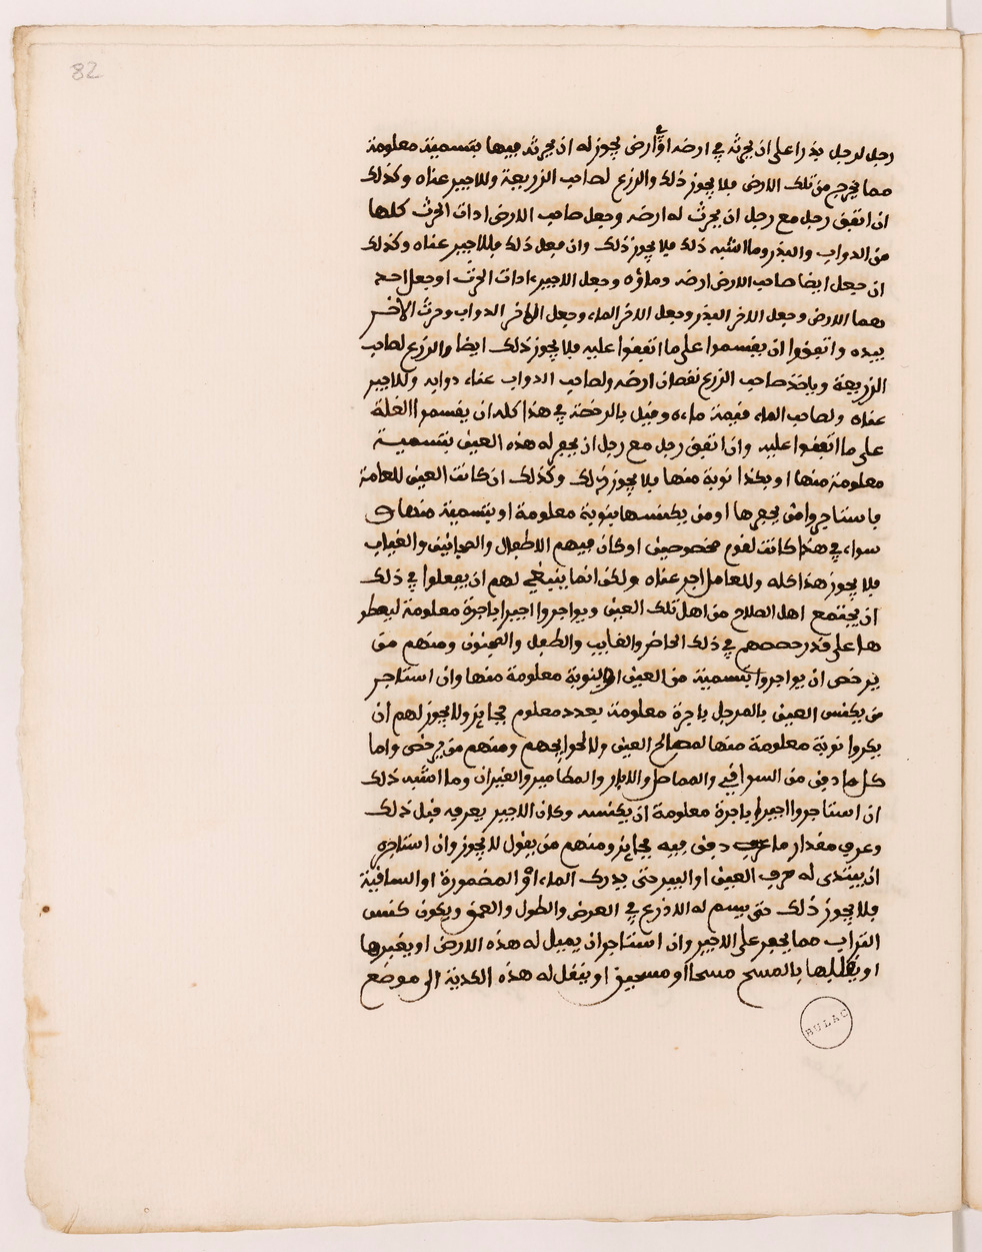 82
رجل لرجل بذرا على ان يحرثه في ارضه او في ارض يجوز له ان يحرثه فيها بتسمية معلومة
مما يخرج من تلك الارض فلا يجوز ذلك والزرع لصاحب الزريعة وللاجير عناه وكذلك
ان اتفق رجل مع رجل ان يحرث له ارضه وجعل صاحب الارض ادات الحرث كلها
من الدواب والبذر وما اشبه ذلك فلا يجوز ذلك وان فعل ذلك فللاجير عناه وكذلك
ان جعل ايضا صاحب الارض ارضه وماؤه وجعل الاجير ءادات الحرث او جعل احد
هما الارض وجعل الاخر البذر وجعل الاخر الماء وجعل الاخر الدواب وحرث الاخر
بيده واتفقوا ان يقسموا على ما اتفقوا عليه فلا يجوز ذلك ايضا والزرع لصاحب
الزريعة وياخذ صاحب الزرع نقصان ارضه ولصاحب الدواب عناء دوابه وللاجير
عناه ولصاحب الماء قيمة ماءه وقيل بالرخصة في هذا كله ان يقسموا الغلة
على ما اتفقوا عليه وان اتفق رجل مع رجل ان يحفر له هذه العين بتسمية
معلومة منها او بكذا نوبة منها فلا يجوز ذلك وكذلك ان كانت العين للعامة
فاستاجروا من يحفرها او من يكنسها بنوبة معلومة او بتسمية منها و
سواء في هذا كانت لقوم مخصوصين او كان فيهم الاطفال والمجانين والغياب
فلا يجوز هذا كله وللعامل اجر عناه ولكن انما ينبغي لهم ان يفعلوا في ذلك
ان يجتمع اهل الصلاح من اهل تلك العين ويواجروا اجيرا باجرة معلومة ليعطو
ها على قدر حصصهم في ذلك الحاضر والغايب والطفل والمجنون ومنهم من
يرخص ان يواجروا بتسمية من العين او بنوبة معلومة منها وان استاجر
من يكنس العين بالمرجل باجرة معلومة بعدد معلوم فجائز ولا يجوز لهم ان
يكروا نوبة معلومة منها لمصالح العين ولا لحوايجهم ومنهم من يرخص واما
كل ما دفن من السواقي والمماصل والابار والمطامير والغيران وما اشبه ذلك
ان استاجروا اجيرا باجرة معلومة ان يكنسه وكان الاجير يعرفه قبل ذلك
وعرف مقدار ما دفن فيه فجائز ومنهم من يقول لا يجوز وان استاجره
ان يبتدى له حفر العين او البير حتى يدرك الماء او المضمورة او الساقية
فلا يجوز ذلك حتى يسم له الاذرع في العرض والطول والعمق ويكون كنس
التراب مما يحفر على الاجير وان استاجر ان يميل له هذه الارض او يغيرها
او يقللها بالمسح مسحا او مسحين او ينقل له هذه الكدية الى موضع
BULAC